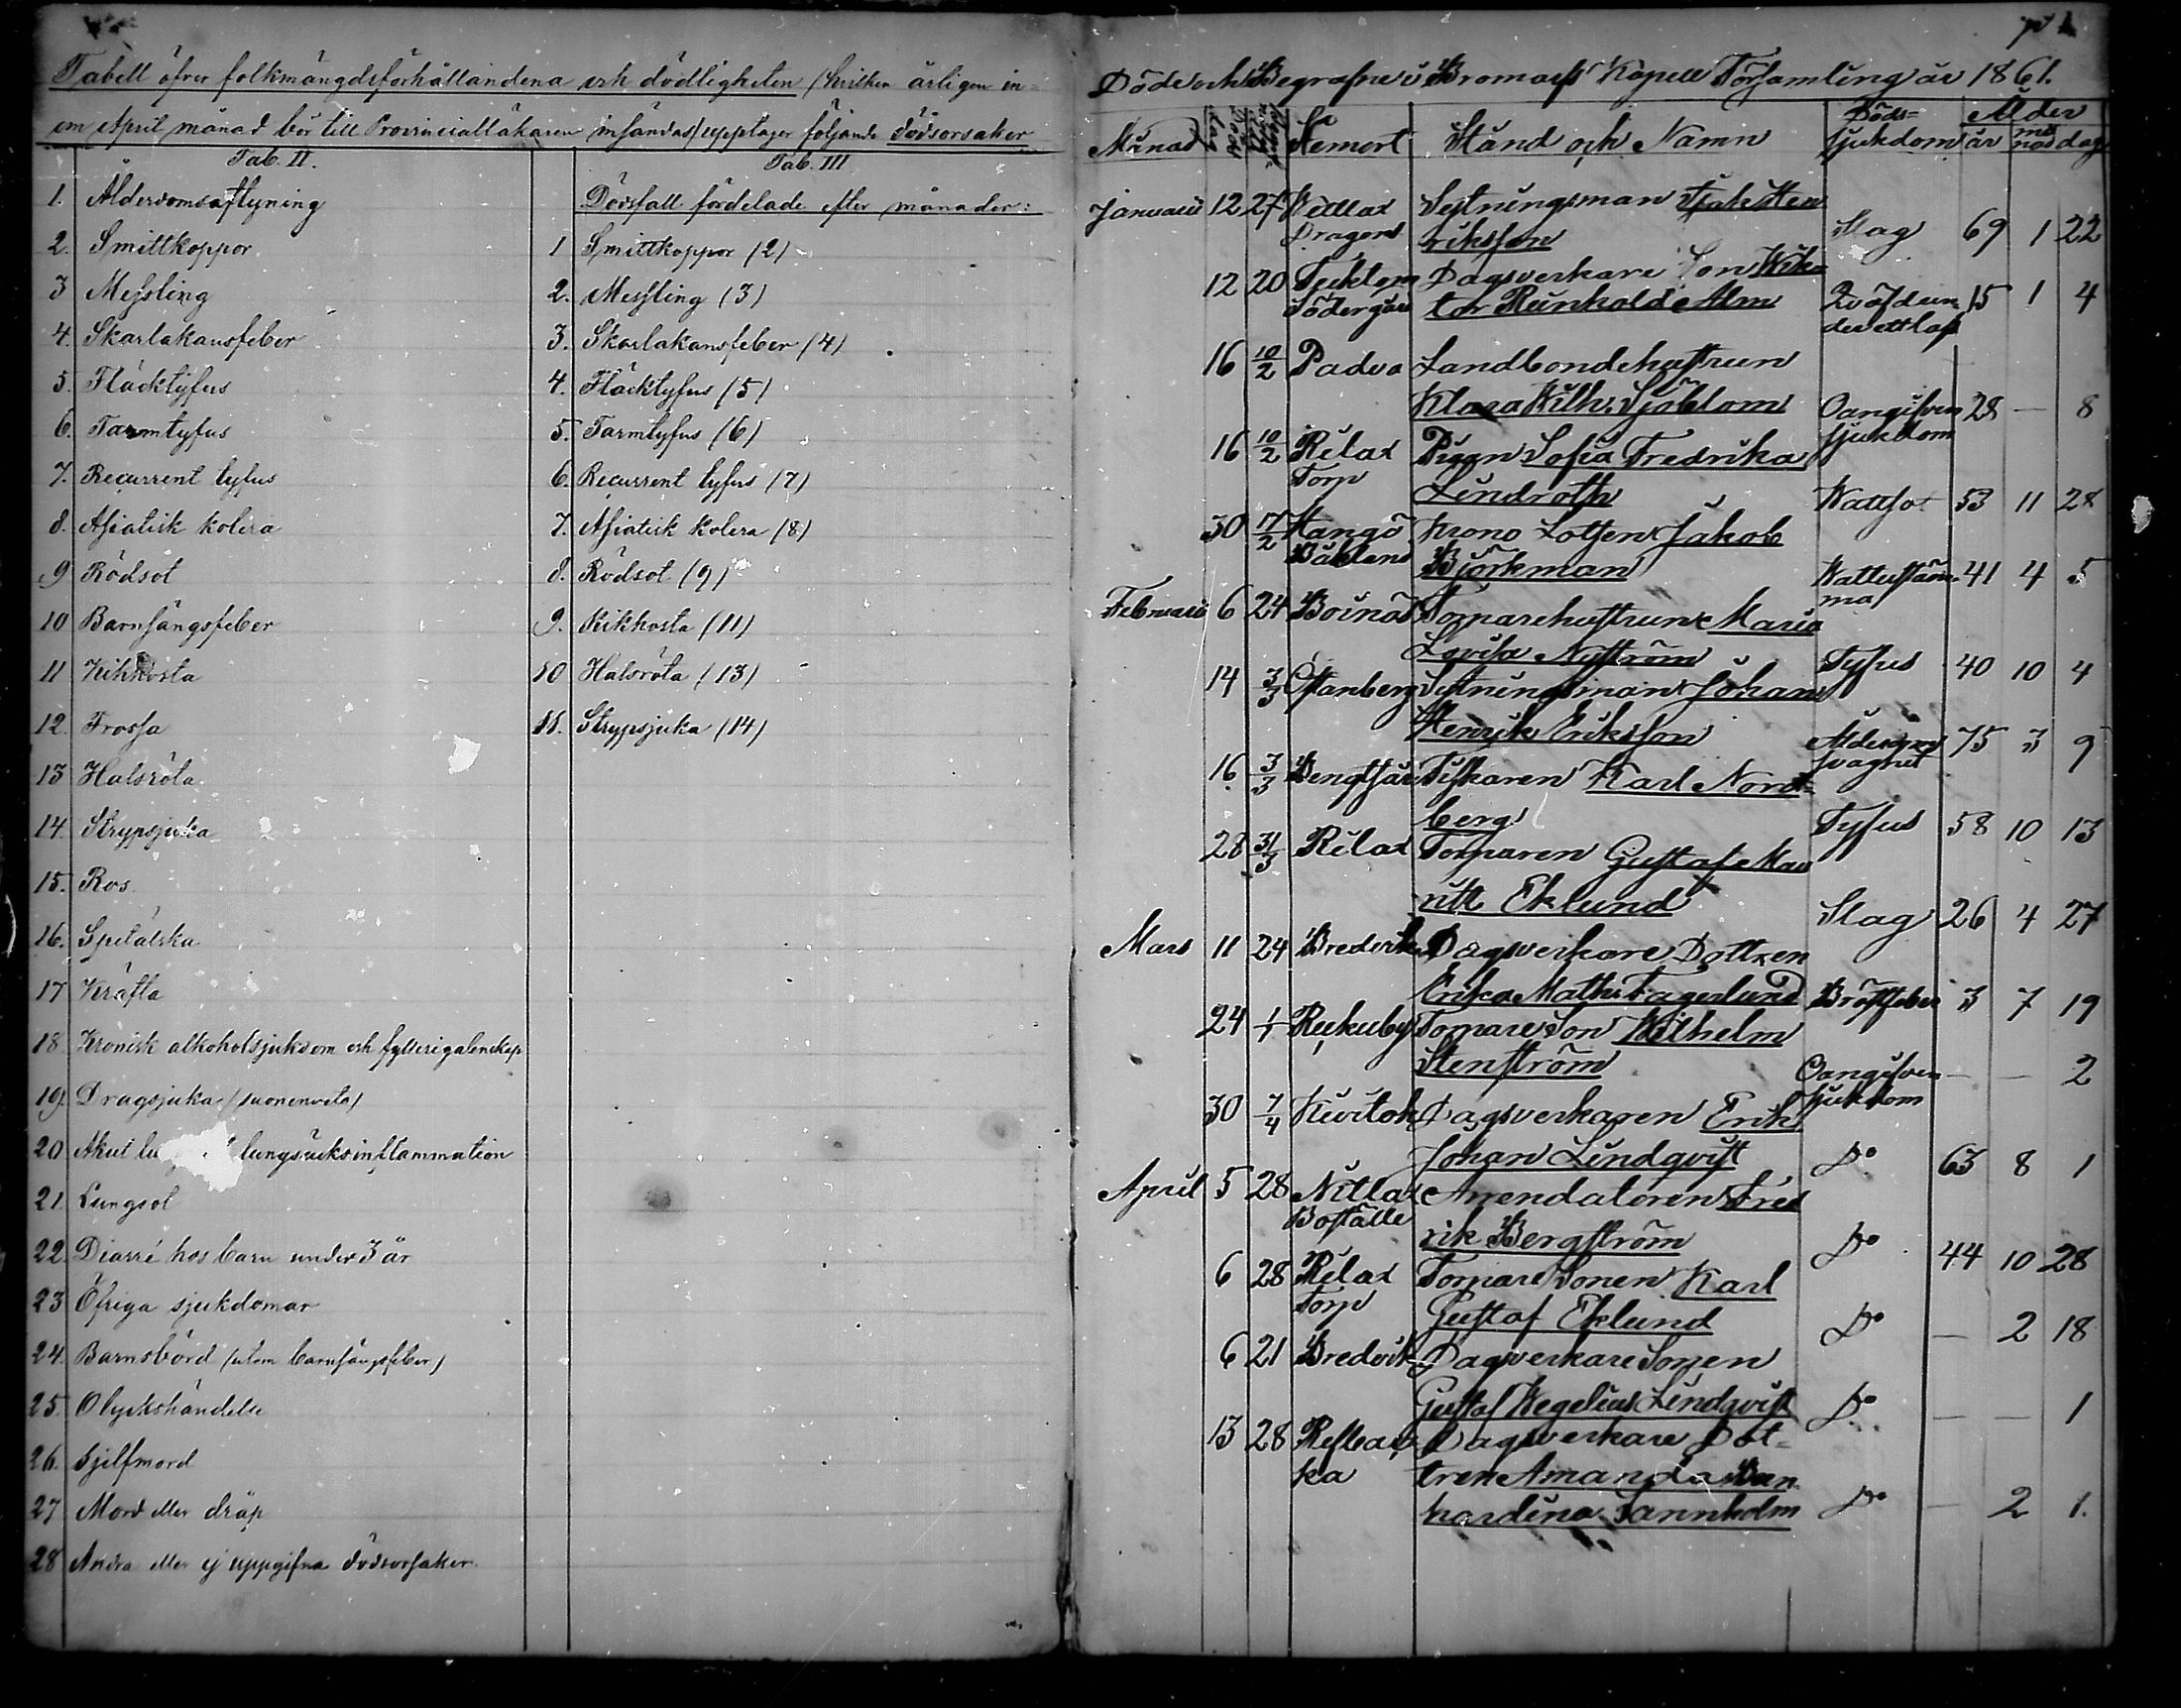 Tabell öfver folkmängdsförhållandena och dödligheten (hvilken årligen in-
om April månad bör till Provincialläkaren insändas) upptager följande dödsorsaker
Tab. II.
1. Ålderdomsaftyning
2. Smittkoppor
3 Messling
4. Skarlakansfeber
5. Fläcktyfus
6. Tarmtyfus
7. Recurrent tyfus
8. Asiatisk kolera
9 Rödsot
10 Barnsängsfeber
11 Kikhosta
12. Frossa
13 Halsröta
14. Strypsjuka
15. Ros
16. Spetälska
17 Kräfta
18 Kronisk alkoholsjukdom och fylleri galenskap
19. Dragsjuka
20 Akut lungsäcksinflammation
21. Lungsot
22. Diarré hos barn under 3 år
23 Öfriga sjukdomar
24. Barnsbörd (utom barnsängsfeber)
25. Olyckshändelse
26. Sjelfmord
27 Mord eller dråp
28 Andra eller ej uppgifna dödsorsaker
Tab. III
Dödsfall fördelade efter månader:
1 Smittkoppor (2)
2. Messling (3)
3. Skarlakansfeber (4)
4. Fläcktyfus (5)
5. Tarmtyfus (6)
6. Recurrent tyfus (7)
7. Asiatisk kolera (8)
8. Rödsot (9)
9. Kikhosta (11)
10 Halsröta (13)
11. Strypsjuka (14)
Döde och Begrafne i Bromarfs Kapell Församling år 1861.
Månad Hemort Stånd och Namn Döds= sjukdom Ålder år må nad dag
Januarii 12 27 Sytningsman
Dragard riksson Slag 69 1 22
12 20 Dagsverkare Son Wik=
Södergård tor Reinhold Alm 15 1 4
16 10/2 Padva Landbondehustrun
Klara Wilh. Sjöblom Oangifven 28 — 8
sjukdom
16 10/2 Rilax Pigan Sofia Fredrika
Torp Lindroth Wattsot 53 11 28
30 17/2 Hangö Krono Lotsen Jakob
Björkman 41 4 5
Februarii 6 24 Boinäs Torparehustrun Maria
Lovisa Nyström Tyfus 40 10 4
14 3/3 Sytningsman Johan
Henrik Eriksson Ålderdoms 75 3 9
svaghet
16 3/3 Bengtsår Fiskaren Karl Nord=
berg Tyfus 58 10 13
28 31/3 Rilax Torparen Gustaf Mau
ritz Eklund Slag 26 4 27
Mars 11 24 Bredvik Dagsverkare Dottren
Erika Math. Fagerlund Bröstfeber 3 7 19
24 Rukuby Torpare Son Wilhelm
Stenström Oangifven — — 2
sjukdom
30 7/4 Kivitok Dagsverkaren Erik
Johan Lindqvist Do 63 8 1
April 5 28 Nitlax Arrendatoren Fred
Boställe rik Bergström Do 44 10 28
6 28 Rilax Torpare Sonen Karl
Torp Gustaf Eklund Do — 2 18
6 21 Bredvik Dagsverkare Sonen
Gustaf Wegelius Lindqvist Do — — 1
13 28 Dagsverkare Dot=
ka tren Amanda
hardina Tannholm Do — 2 1.